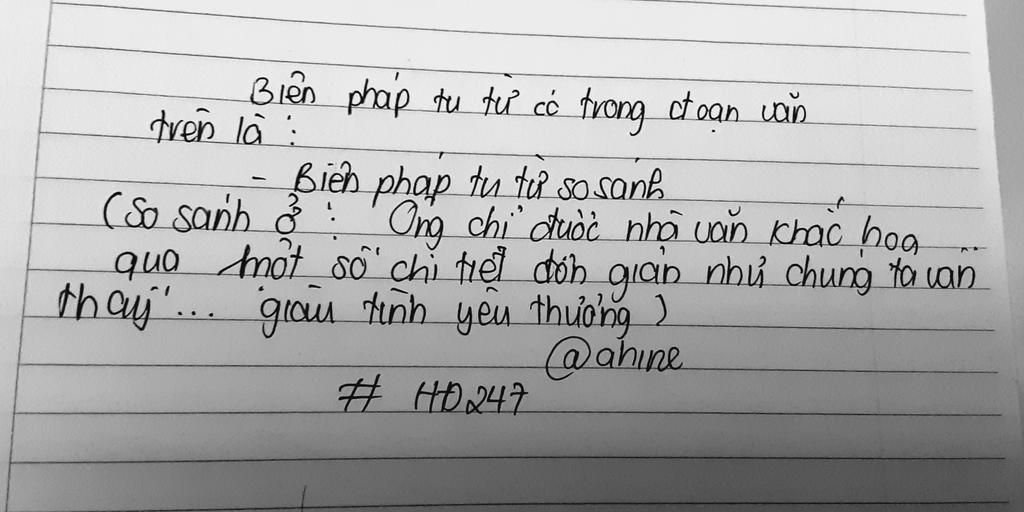 Biện pháp tu từ có trong đoạn văn
trên là :
- Biện pháp tu từ so sánh
(So sánh ở : Ông chỉ được nhà văn khắc hoạ
qua một số chi tiết đơn giản như chúng ta vẫn
thấy ... giàu tình yêu thương)
@ahine
# HD247